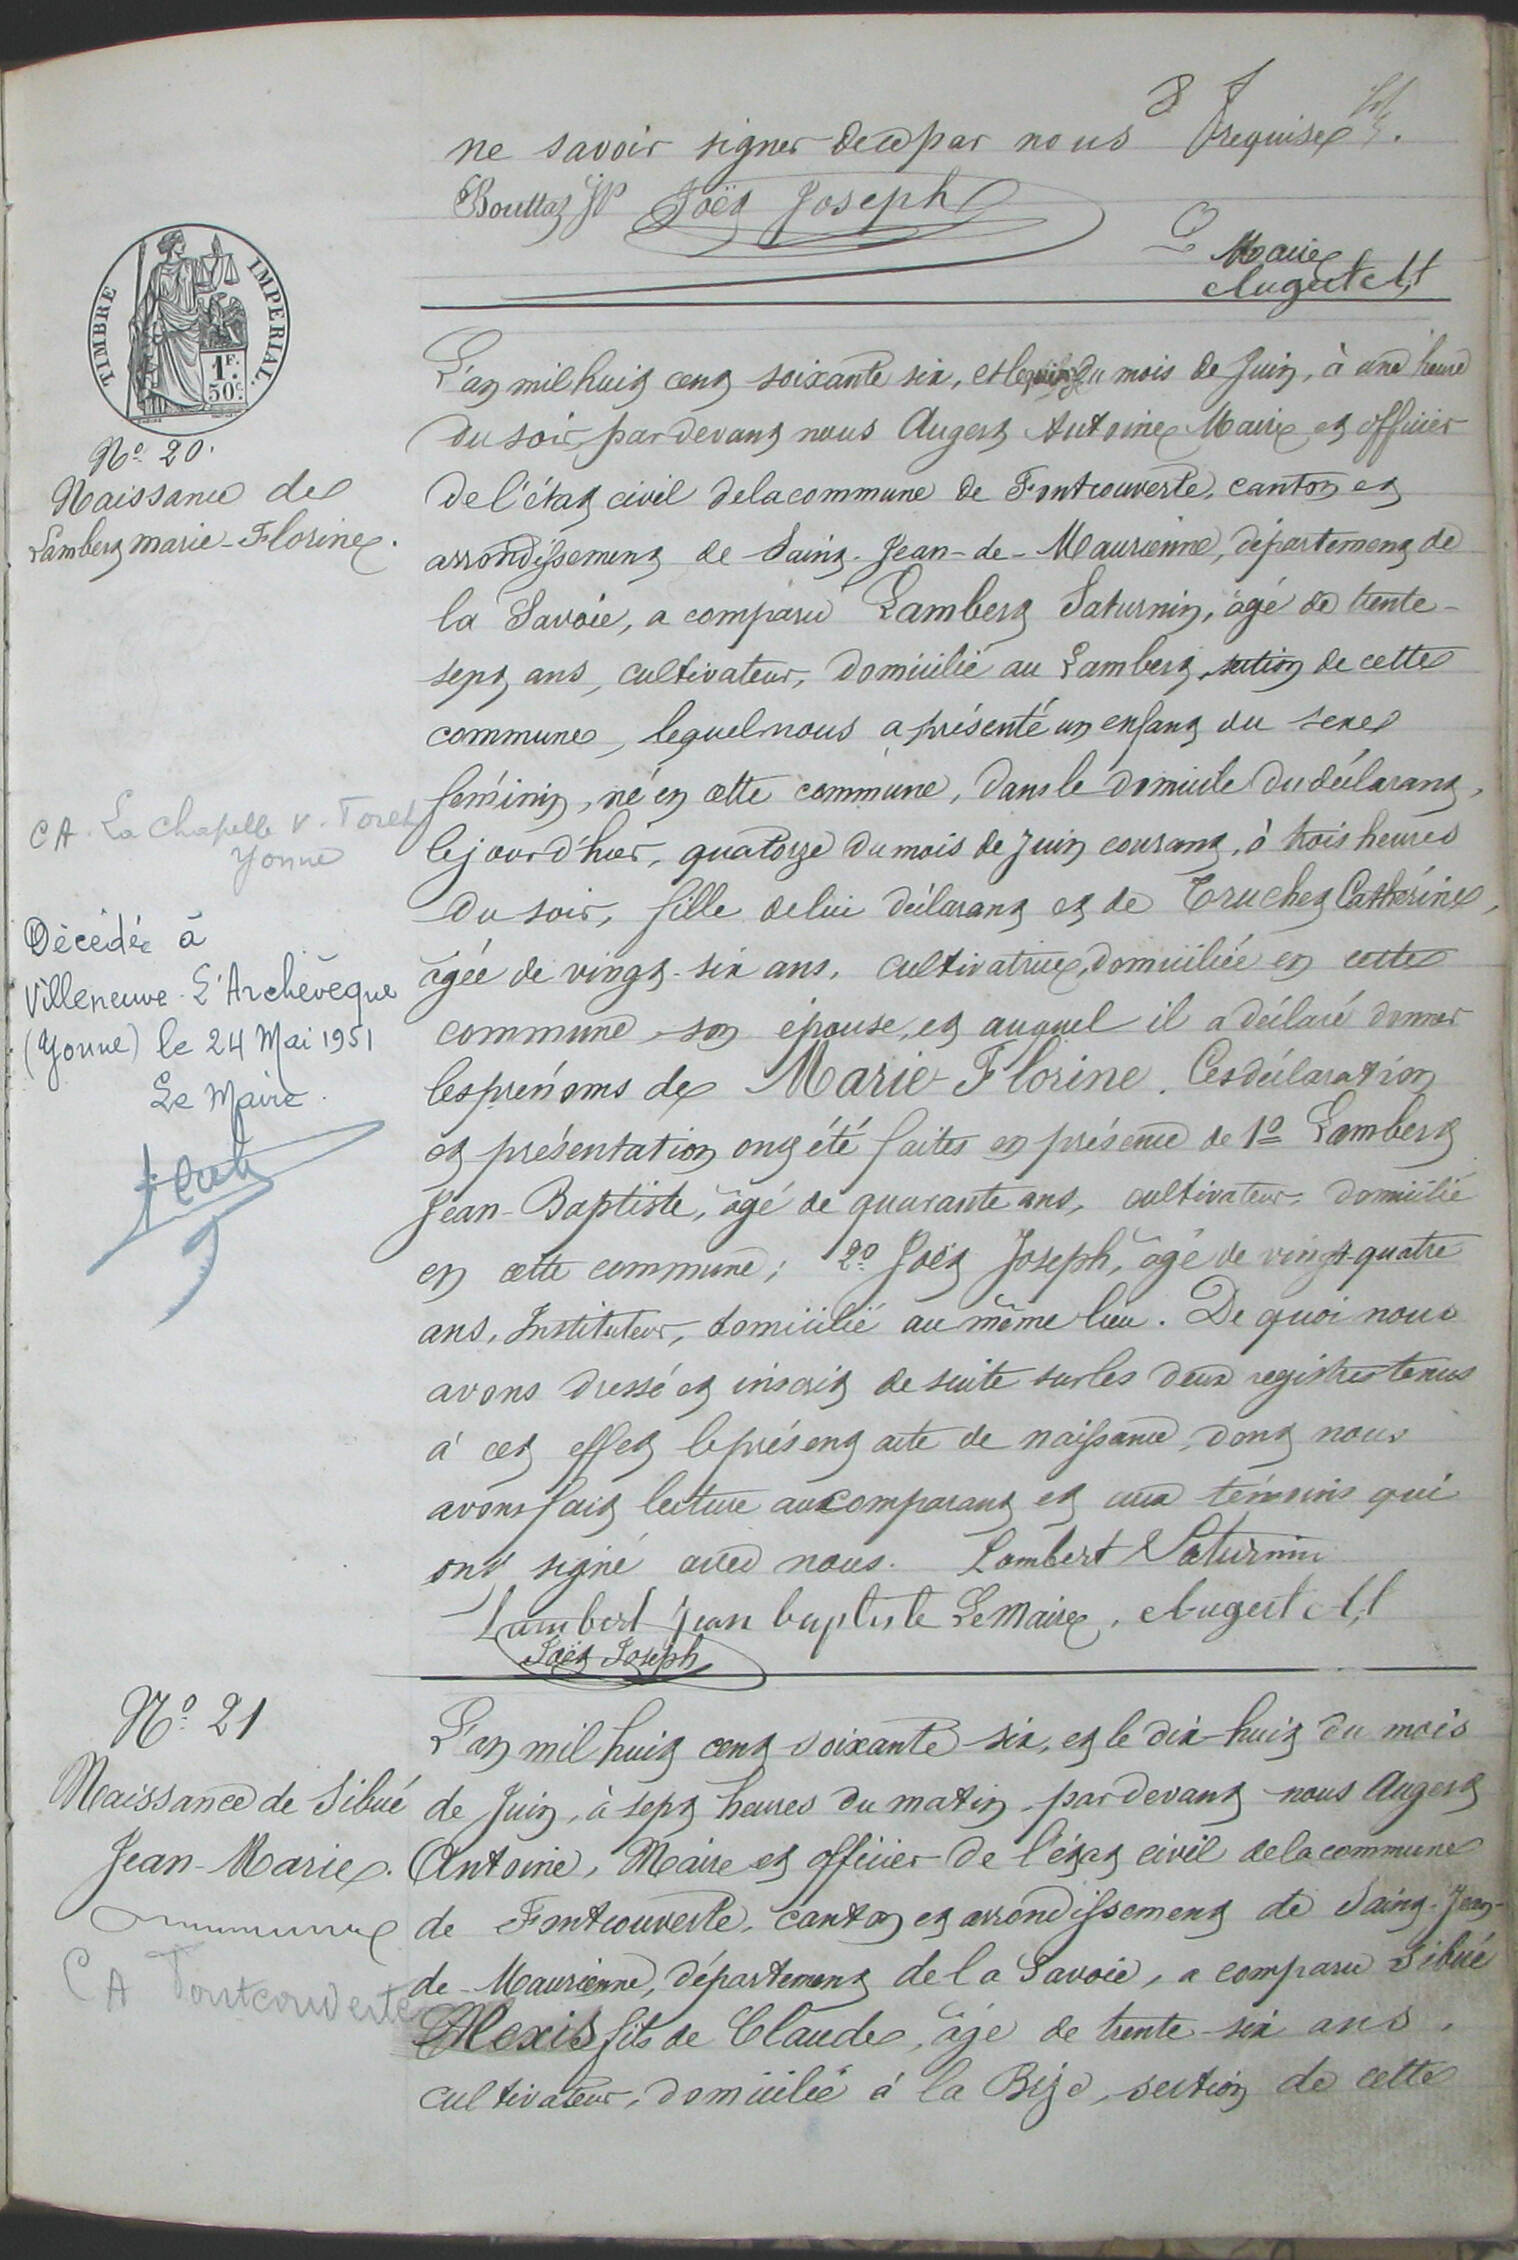 8
ne savoir signer de ce par nous requise.
Bouttaz JP Joët Joseph
Maire
Augert At
TIMBRE IMPERIAL.
1F.
50c.
No. 20.
Naissance de
Lambert marie-Florine.
L'an mil huit cent soixante six, et le quinze du mois de Juin, à une heure
du soir, pardevant nous Augert Antoine Maire et officier
de l'état civil de la commune de Fontcouverte, canton et
arrondissement de Saint-Jean-de-Maurienne, département de
la Savoie, a comparu Lambert Saturnin, âgé de trente-
sept ans, cultivateur, domicilié au Lambert, section de cette
commune, lequel nous a présenté un enfant du sexe
féminin, né en cette commune, dans le domicile du déclarant,
le jour d'hier, quatorze du mois de Juin courant, à trois heures
du soir, fille de lui déclarant et de Truchet Catherine,
âgée de vingt-six ans, cultivatrice, domiciliée en cette
commune, son épouse, et auquel il a déclaré donner
les prénoms de Marie-Florine. Ces déclaration
et présentation ont été faites en présence de 1o Lambert
Jean-Baptiste, âgé de quarante ans, cultivateur, domicilié
en cette commune; 2o Joët Joseph, âgé de vingt-quatre
ans, Instituteur, domicilié au même lieu. De quoi nous
avons dressé et inscrit de suite sur les deux registres tenus
à cet effet le présent acte de naissance, dont nous
avons fait lecture au comparant et aux témoins qui
ont signé avec nous. Lambert Saturnin
Lambert jean baptiste Le Maire, Augert At
Joët Joseph
CA. La Chapelle v. Foret
Yonne
Décédée à
Villeneuve-L'Archevêque
(Yonne) le 24 Mai 1951
Le Maire.
No. 21
Naissance de Sibué
Jean-Marie.
CA Fontcouverte
L'an mil huit cent soixante-six, et le dix-huit du mois
de Juin, à sept heures du matin, pardevant nous Augert
Antoine, Maire et officier de l'état civil de la commune
de Fontcouverte, canton et arrondissement de Saint-Jean-
de-Maurienne, département de la Savoie, a comparu Sibué
Alexis fils de Claude, âgé de trente-six ans,
cultivateur, domicilié à la Bise, section de cette